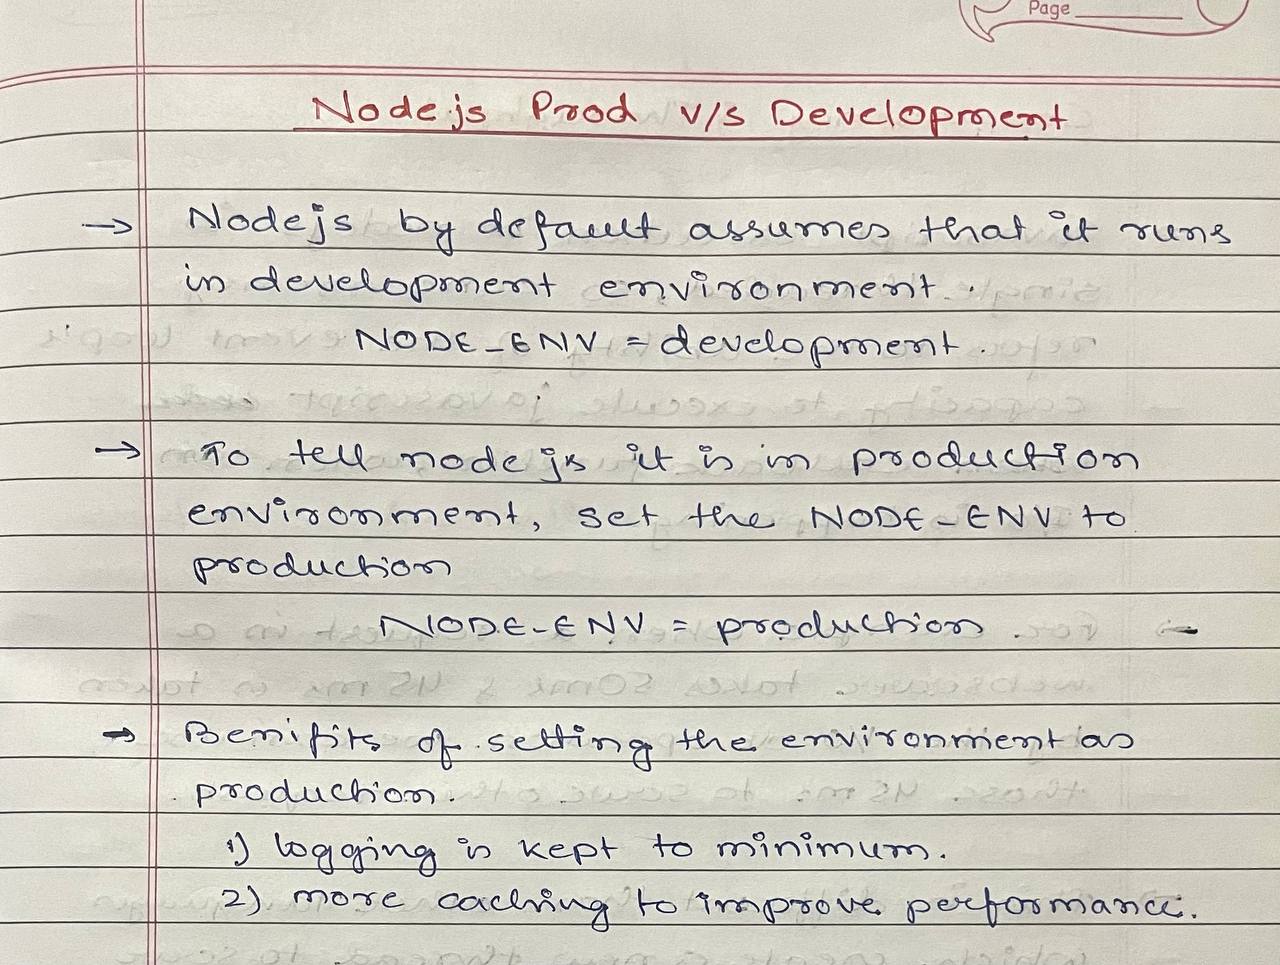 Page
Node.js Prod v/s Development
→ Nodejs by default assumes that it runs
in development environment.
NODE_ENV = development.
→ To tell node js it is in production
environment, set the NODE_ENV to
production
NODE_ENV = production.
→ Benifits of setting the environment as
production.
1) logging is kept to minimum.
2) more caching to improve performance.